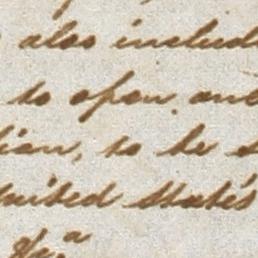 also includ
to open and
tion, to be s
United States